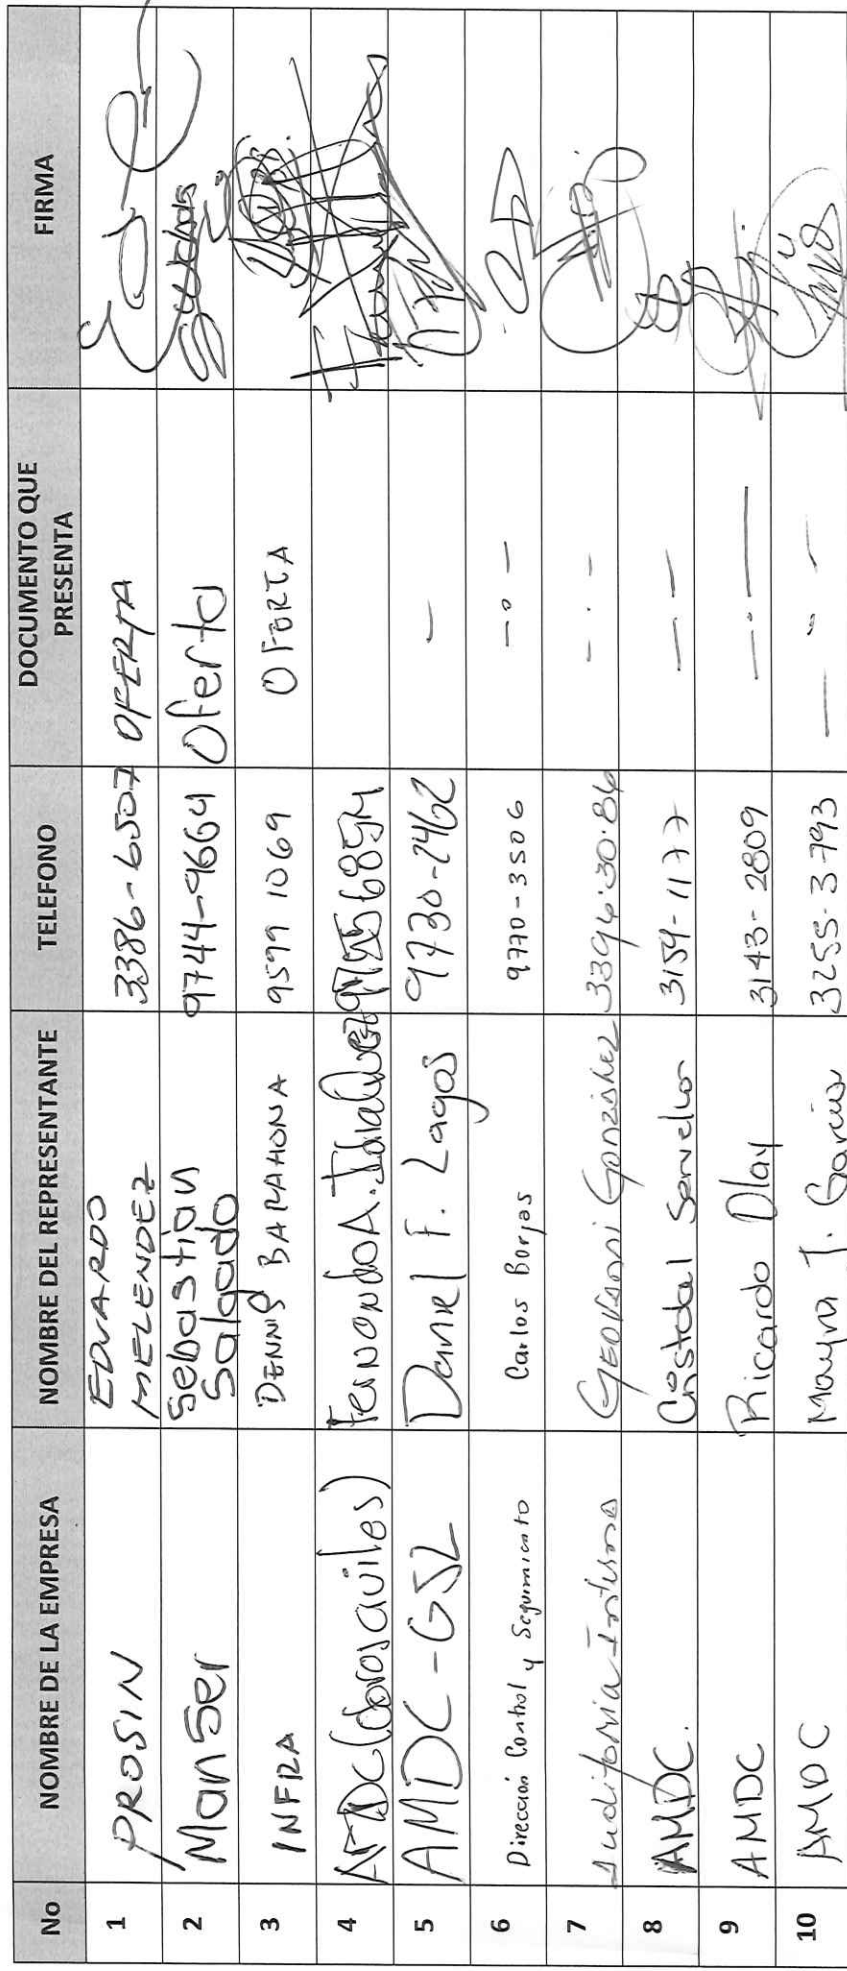 No NOMBRE DE LA EMPRESA NOMBRE DEL REPRESENTANTE TELEFONO DOCUMENTO QUE PRESENTA FIRMA
1 PROSIN EDUARDO MELENDEZ 3386-6507 OFERTA
2 Manser Sebastian Salgado 9744-9664 Oferta
3 INFRA DENNIS BARAHONA 9599 1069 OFERTA
4 Fernando A.
5 AMDC-GSL Daniel F. Lagos 9730-2462 -
6 Dirección Control y Seguimiento Carlos Borjas 9770-3506 -.-
7 Auditoria Interna GEOVANNI González 3394.30.86 -.-
8 AMDC. Cristobal 3159-1177 --
9 AMDC Ricardo Olay 3143-2809 -.-
10 AMDC Mayra J. García 3255-3793 -.-